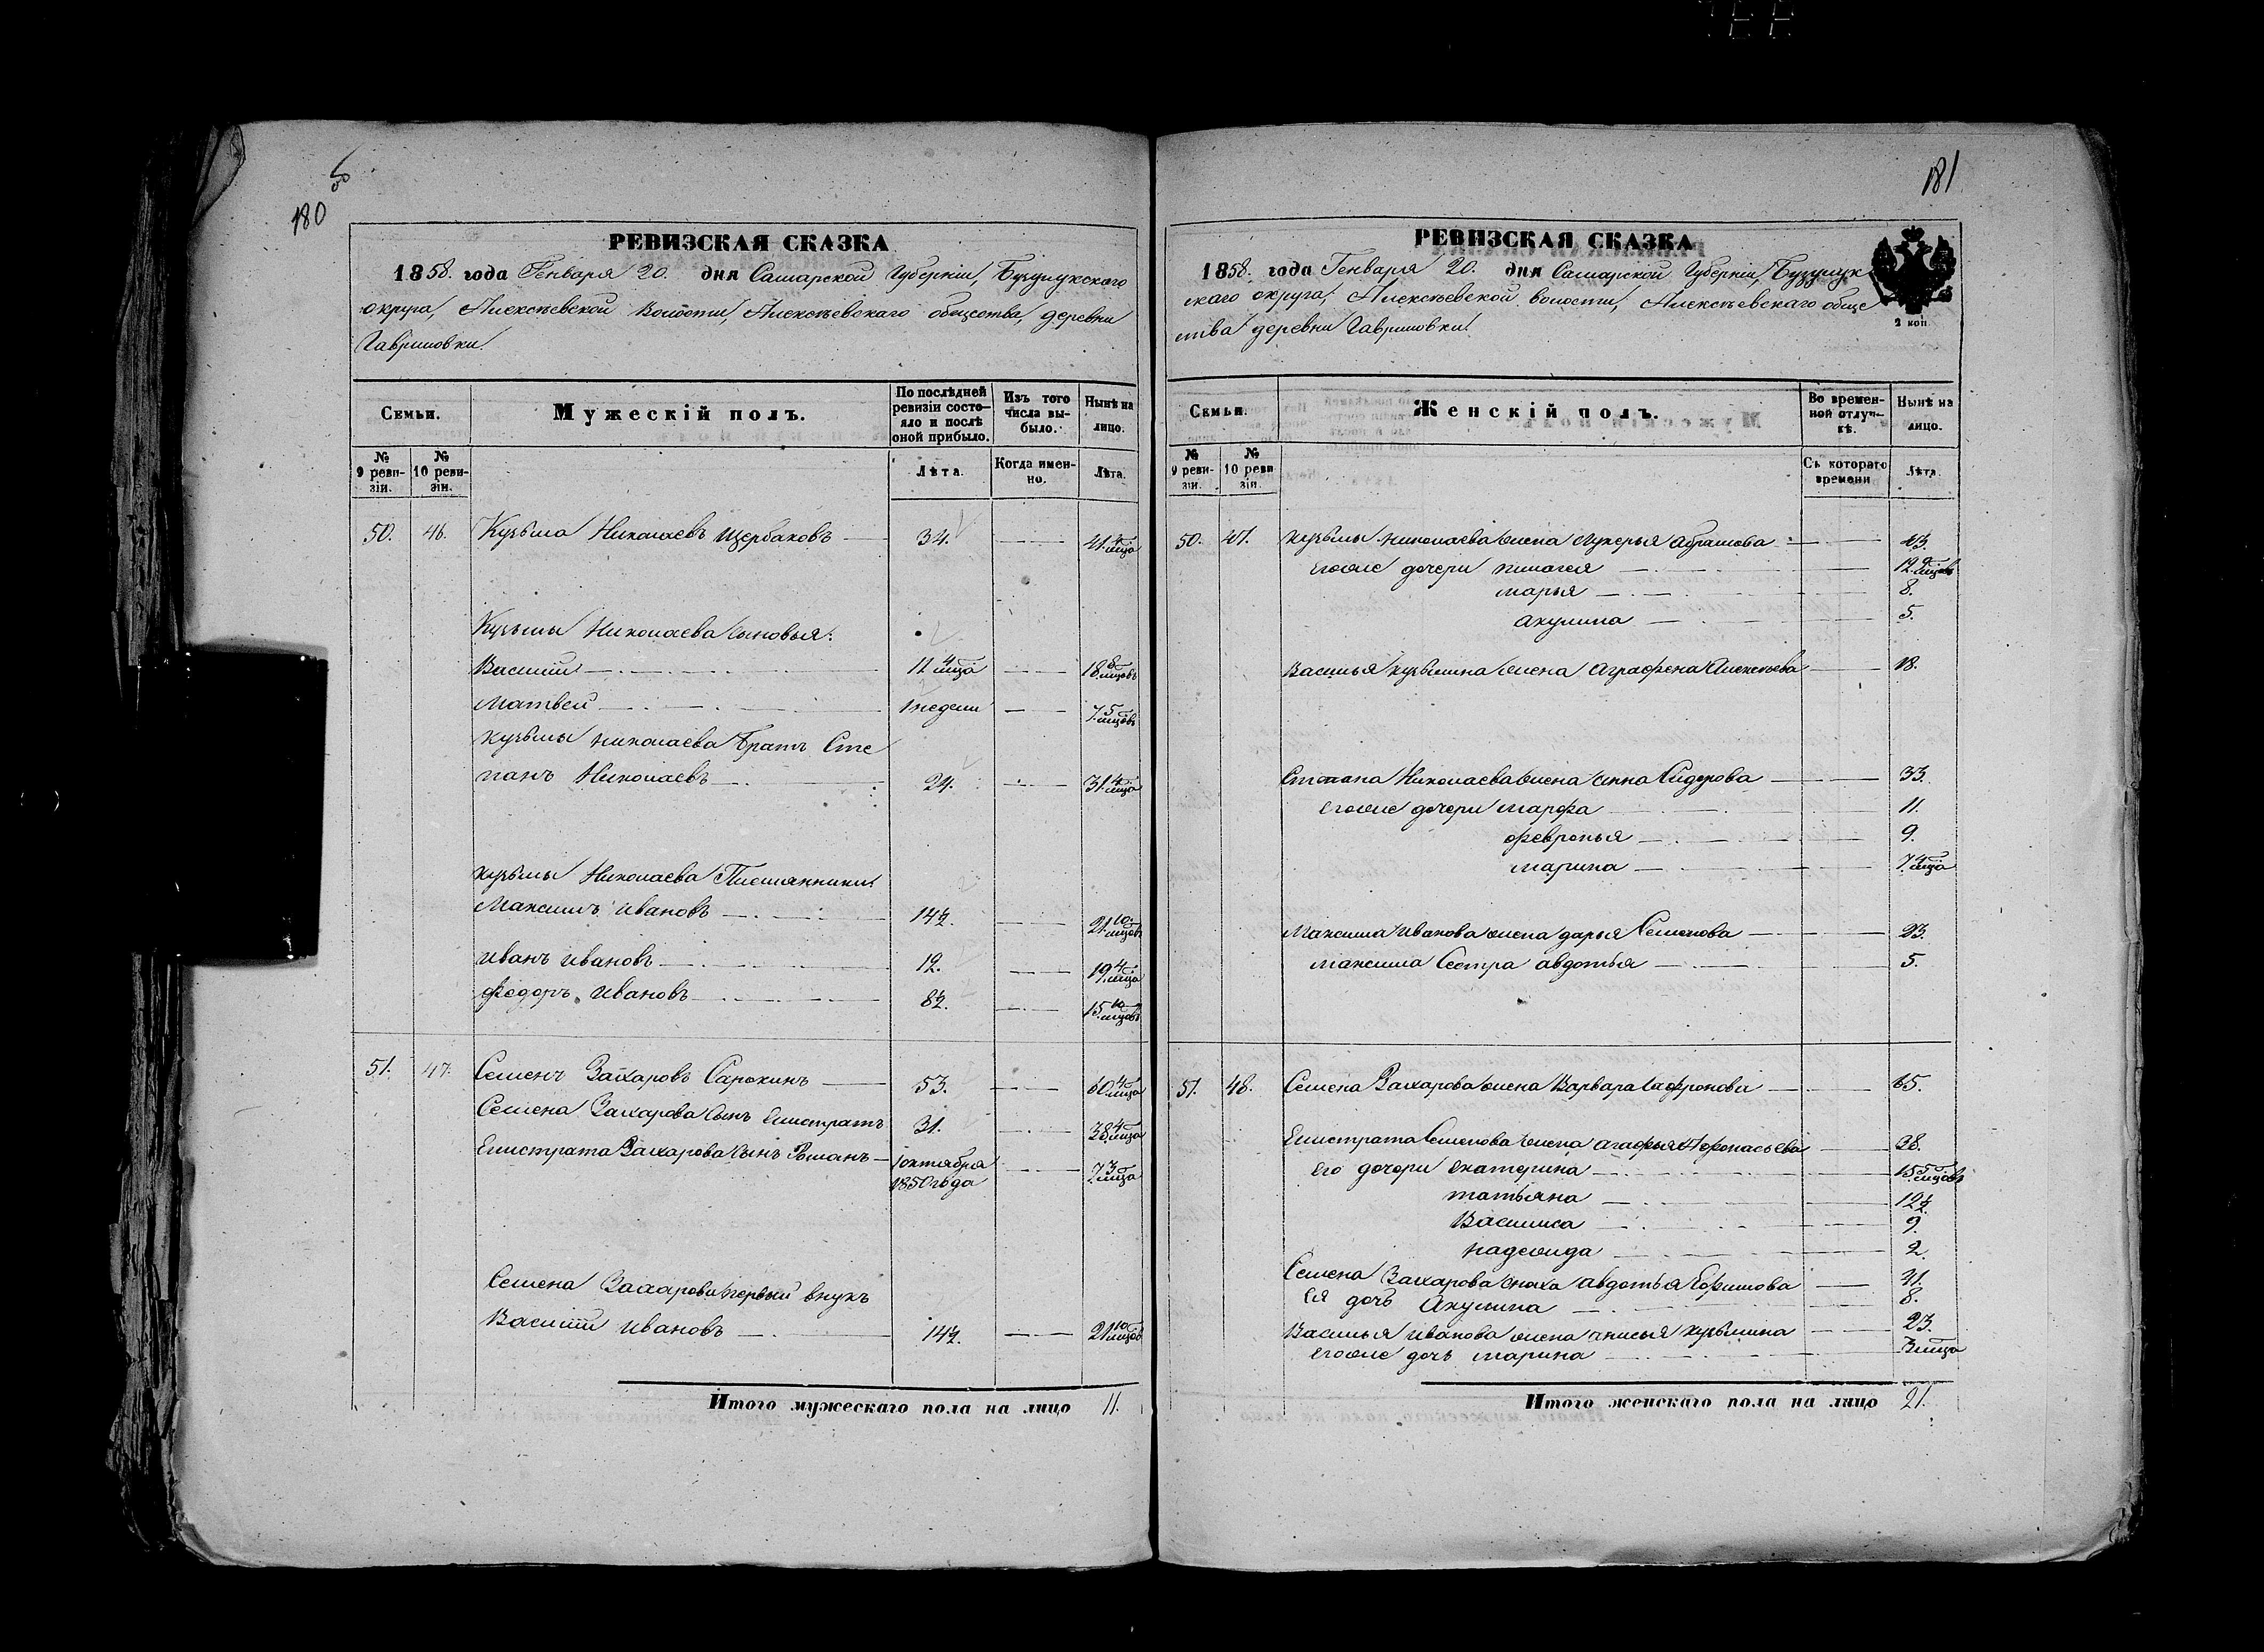 180
РЕВИЗСКАЯ СКАЗКА
1858. года Генваря 20. дня Самарской Губерніи, Бузулукскаго
округа, Алексѣевской Волости, Алексѣевскаго общества, деревни
Гавриловки.
Семьи.
Мужескій полъ.
По послѣдней ревизіи состояло и послѣ оной прибыло.
Изъ того числа выбыло.
Нынѣ на лицо.
№ 9 ревизіи.
№ 10 ревизіи.
Лѣта.
Когда именно.
Лѣта.
50. 46. Кузьма Николаевъ Щербаковъ 34. 41. 4 мѣца
Кузьмы Николаева сыновья:
Василій 11 4 мѣца 18. 8 мѣцовъ
Матвей 1 недели 7. 5 мѣцовъ
Кузьмы Николаева братъ Сте
панъ Николаевъ 24. 31. 4 мѣца
Кузьмы Николаева Племянники:
Максимъ Ивановъ 14½. 21. 10 мѣцовъ
Иванъ Ивановъ 12. 19. 4 мѣца
Федоръ Ивановъ 8½. 15. 10 мѣцовъ
51. 47. Семенъ Захаровъ Сарокинъ 53. 60. 4 мѣца
Семена Захарова сынъ Елистратъ 31. 38 4 мѣца
Елистрата Захарова сынъ Романъ 1 октября 7 3 мѣца
1850 года
Семена Захарова первый внукъ
Василій Ивановъ 14½. 21 10 мѣцов
Итого мужескаго пола на лицо 11.
181
РЕВИЗСКАЯ СКАЗКА
1858. года Генваря 20. дня Самарской Губерніи, Бузулук
скаго округа, Алексѣевской волости, Алексѣевскаго обще
ства деревни Гавриловки.
2 коп.
Семьи.
Женскій полъ.
Во временной отлучкѣ.
Нынѣ на лицо.
№ 9 ревизіи.
№ 10 ревизіи.
Съ котораго времени
Лѣта.
50. 47. Кузьмы Николаева жена Лукерья Абрамова 43.
его же дочери Пелагея 12. 9 мѣцовъ
Марья 8.
Акулина 5.
Василья Кузьмина жена Аграфена Алексѣева 18.
Степана Николаева жена Анна Сидорова 33.
его же дочери Марфа 11.
Февронья 9.
Марина 7. 4 мѣца
Максима Иванова жена Дарья Семенова 23.
Максима Сестра Авдотья 5.
51. 48. Семена Захарова жена Варвара Сафронова 65.
Елистрата Семенова жена Агафья Афонасьева 38.
его дочери Екатерина 15 5 мѣцовъ
Татьяна 12½
Василиса 9.
Надежида 2.
Семена Захарова сноха Авдотья Ефимова 41.
Ея дочь Акулина 8.
Василья Иванова жена Анисья Кузьмина 23.
его же дочь Марина 3 мѣца
Итого женскаго пола на лицо 21.